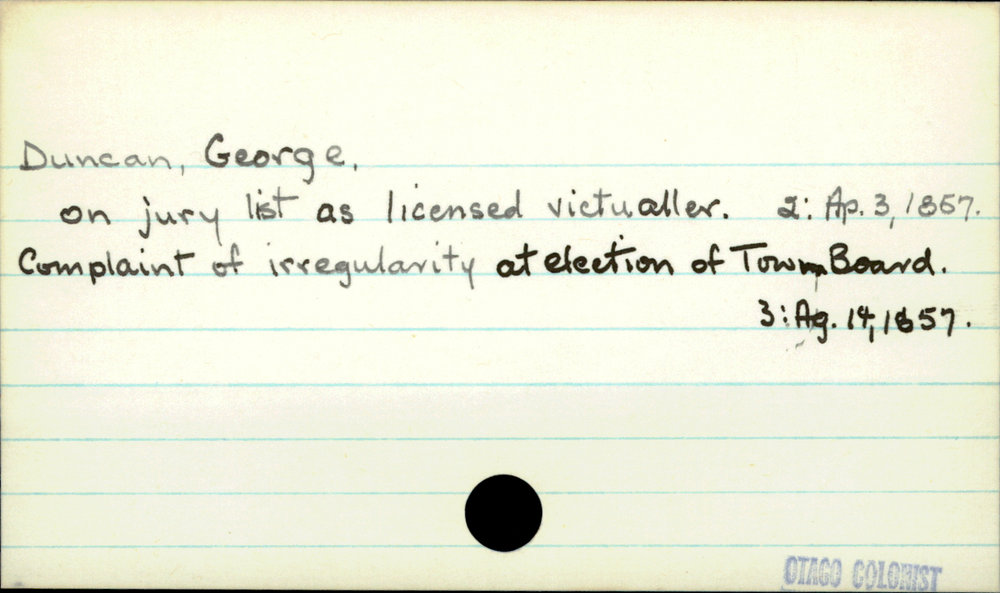 Duncan, George.
on jury list as licensed victualler. 2: Ap. 3, 1857.
Complaint of irregularity at election of Town Board.
3: Ag. 14, 1857.
OTAGO COLONIST